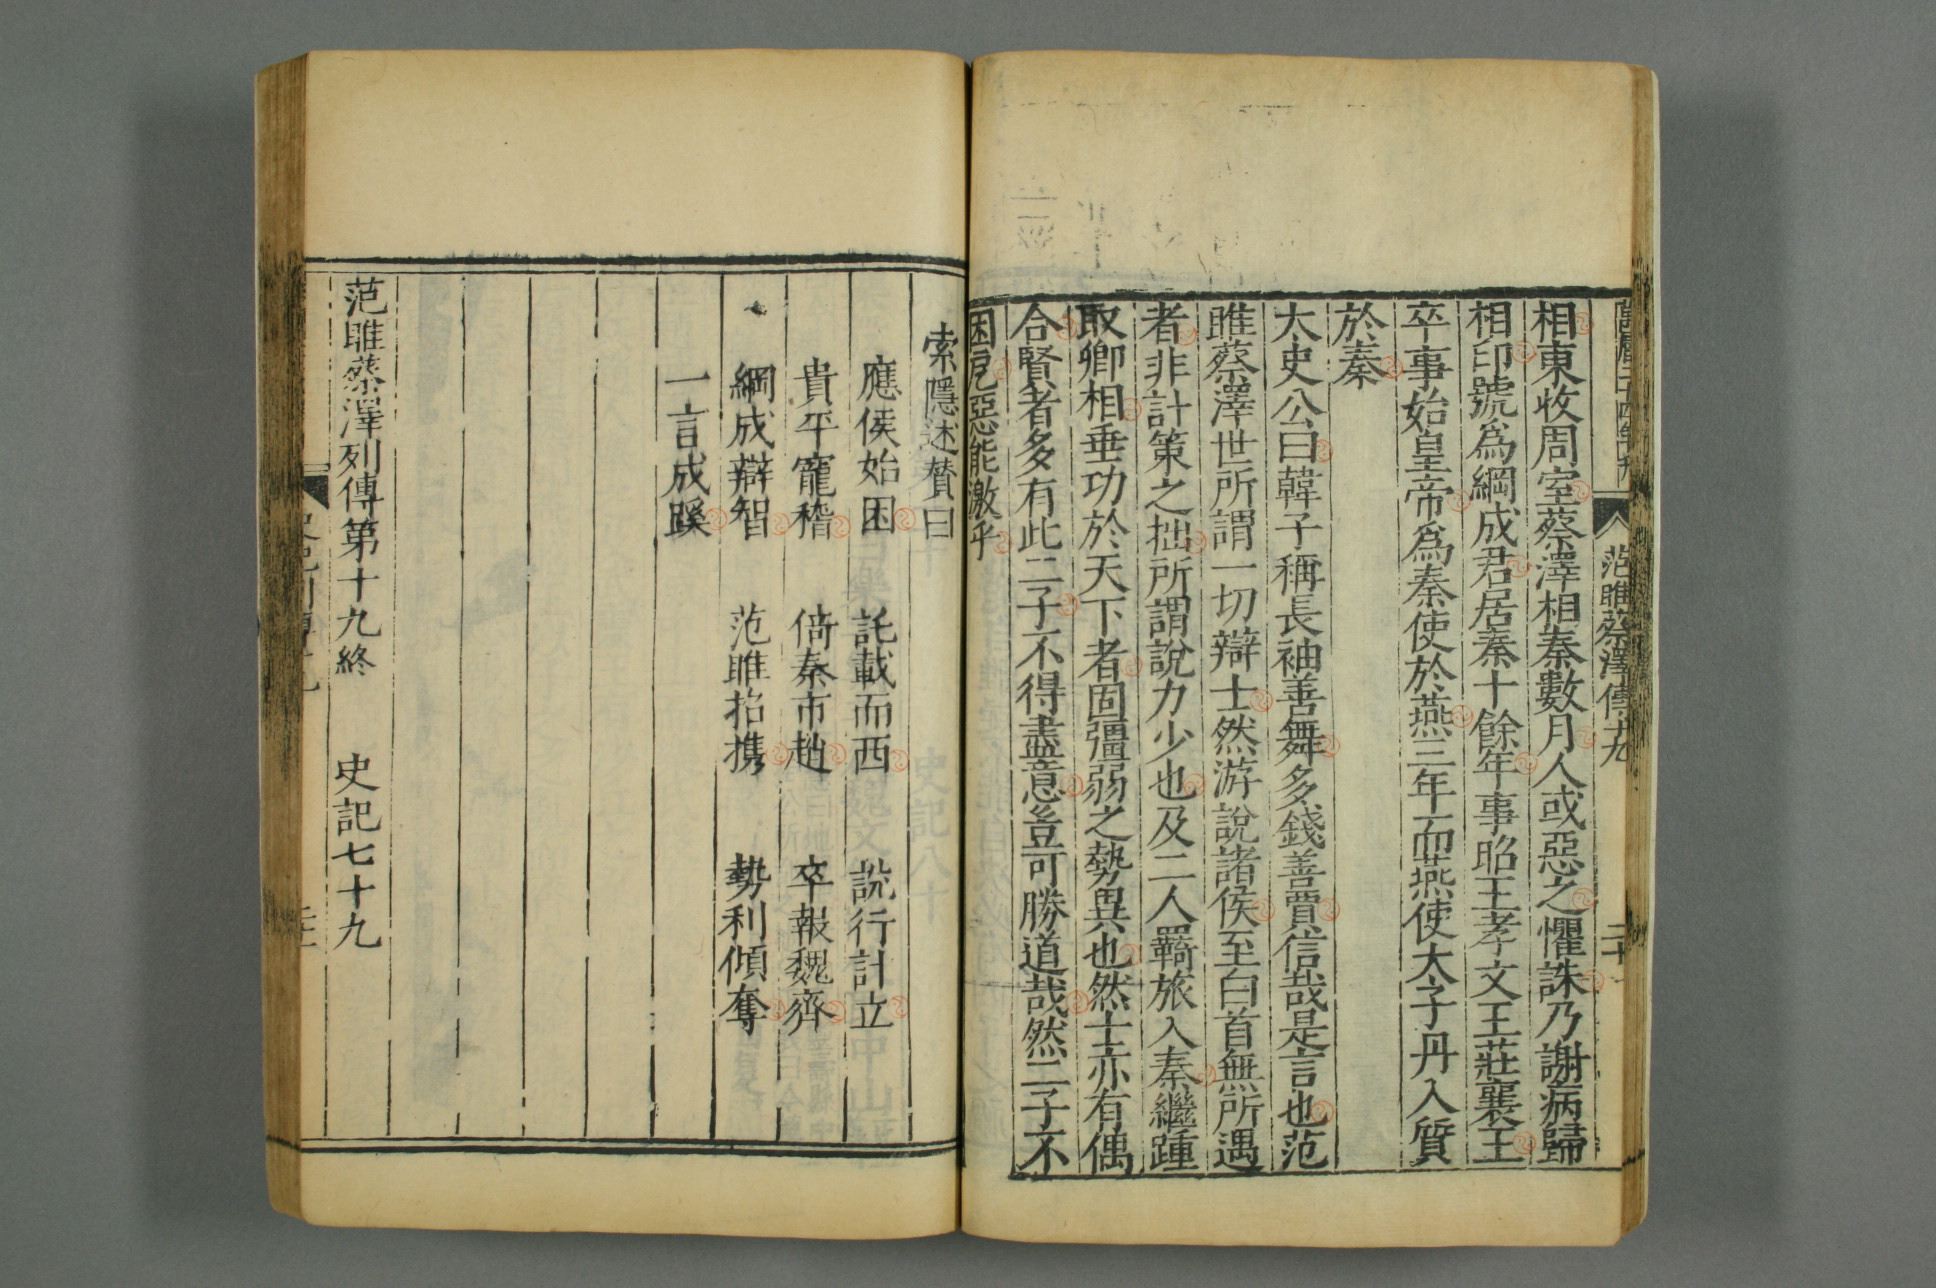 萬曆二十四年刊
范雎蔡澤傳十九
二十
相東收周室蔡澤相秦數月人或惡之懼誅乃謝病歸
相印號爲綱成君居秦十餘年事昭王孝文王莊襄王
卒事始皇帝爲秦使於燕三年而燕使太子丹入質
於秦
太史公曰韓子稱長袖善舞多錢善賈信哉是言也范
雎蔡澤世所謂一切辯士然游說諸侯至白首無所遇
者非計策之拙所謂說力少也及二人羈旅入秦繼踵
取卿相垂功於天下者固彊弱之勢異也然士亦有偶
合賢者多有此二子不得盡意豈可勝道哉然二子不
困戹惡能激乎
索隱述贊曰
應侯始困 託載而西 說行計立
貴平寵稽 倚秦市趙 卒報魏齊
綱成辯智 范雎招携 勢利傾奪
一言成蹊
范雎蔡澤列傳第十九終 史記七十九